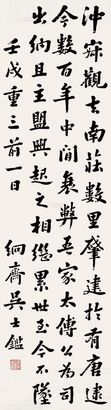 沖寂觀去南莊數里肇建於有唐迄
今數百年中間衰弊吾家太傅公為司
出納且主盟興起之相繼累世至今不墜
壬戌重三前一日
絅齋吳士鑑